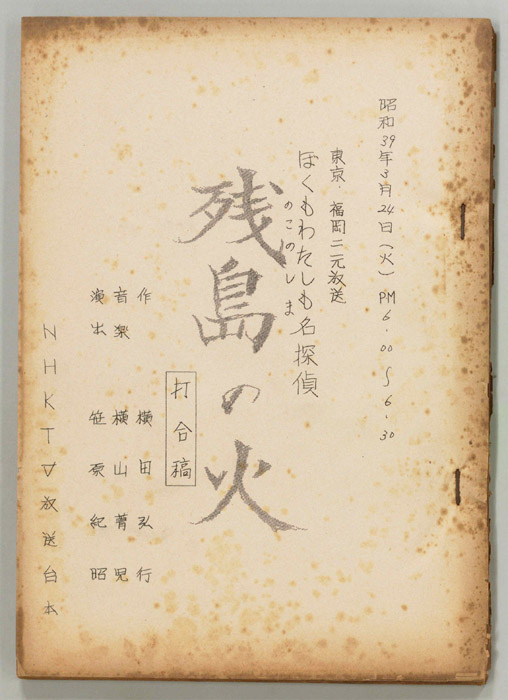 昭和39年3月24日(火)PM6.00〜6.30
東京・福岡二元放送
ぼくもわたしも名探偵
のこのしま
残島の火
打合稿
作 横田弘行
音楽 横山菁児
演出 笹原紀昭
NHKTV放送台本